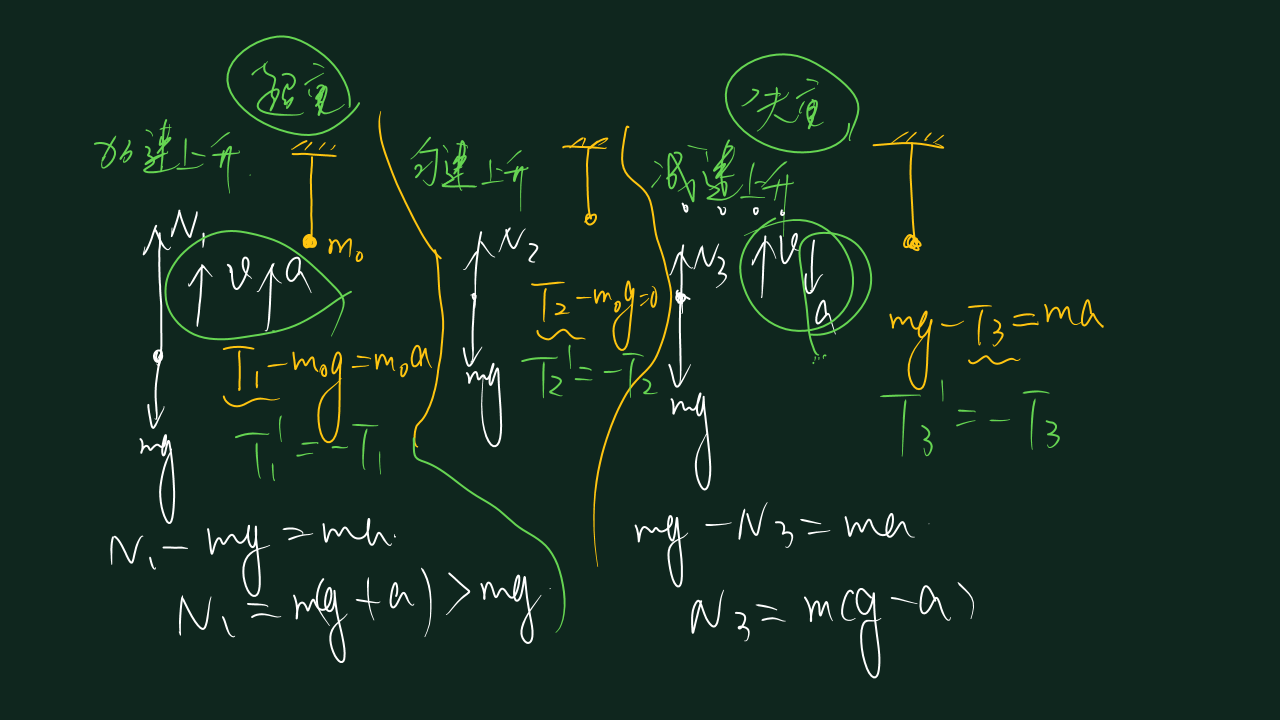 超重
加速上升
N₁
v a
m₀
T₁-m₀g=m₀a
T₁'=-T₁
mg
N₁-mg=ma
N₁=m(g+a)>mg
匀速上升
N₂
T₂-m₀g=0
T₂'=-T₂
mg
失重
减速上升
N₃
v
a
mg-T₃=ma
T₃'=-T₃
mg
mg-N₃=ma
N₃=m(g-a)